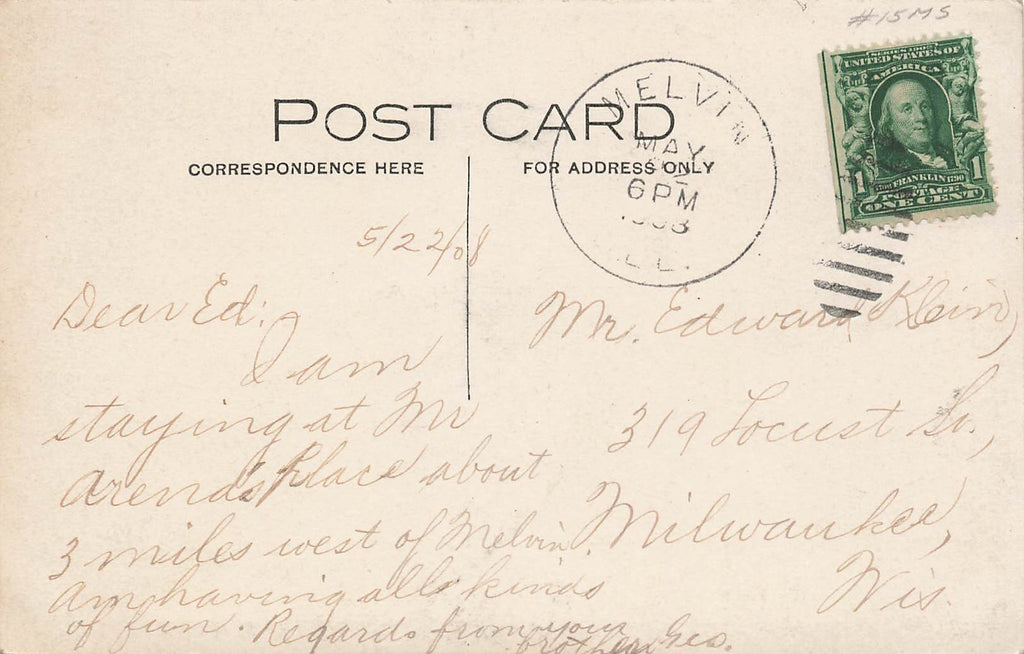 #15MS
SERIES 1902
UNITED STATES OF
AMERICA
FRANKLIN 1790
POSTAGE
1 1
ONE CENT
MELVIN
MAY
6PM
1908
ILL.
POST CARD
CORRESPONDENCE HERE
FOR ADDRESS ONLY
5/22/08
Dear Ed:
I am
staying at Mr
Arends's place about
3 miles west of Melvin.
Am having alls kinds
of fun. Regards from your
brother Geo.
Mr. Edward Klein,
319 Locust St.,
Milwaukee,
Wis.